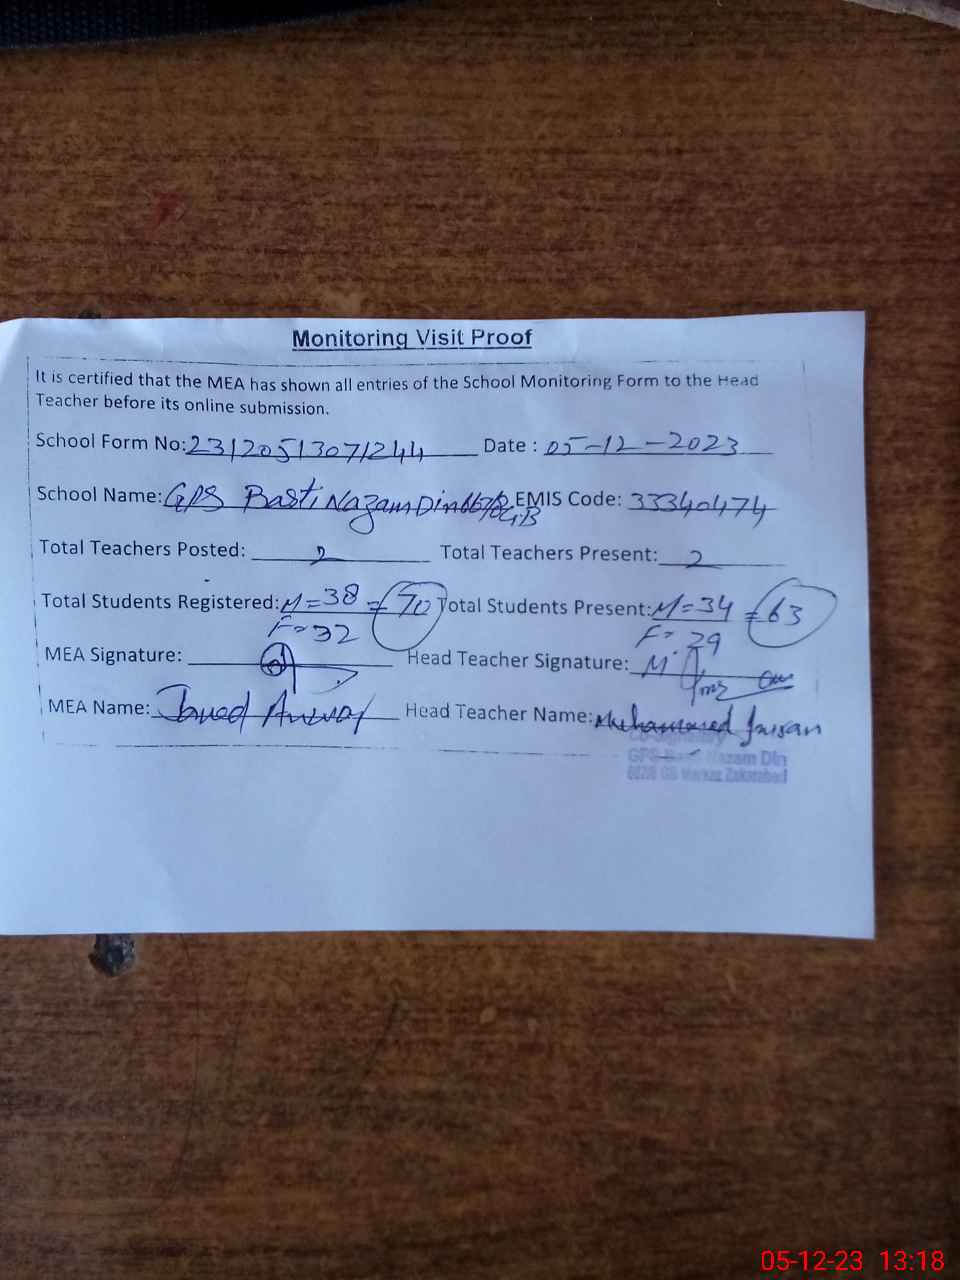 Monitoring Visit Proof
It is certified that the MEA has shown all entries of the School Monitoring Form to the Head
Teacher before its online submission.
School Form No: 23120513071244 Date : 05-12-2023
School Name: GPS Basti Nazam Din 667/8 G.B EMIS Code: 33340474
Total Teachers Posted: 2 Total Teachers Present: 2
Total Students Registered: M=38 =70 Total Students Present: M=34 =63
F=32 F=29
MEA Signature: Head Teacher Signature: M.
MEA Name: Javed Anwar Head Teacher Name: Muhammad
GPS Basti Nazam Din
GB Markaz Zakarabad
05-12-23 13:18